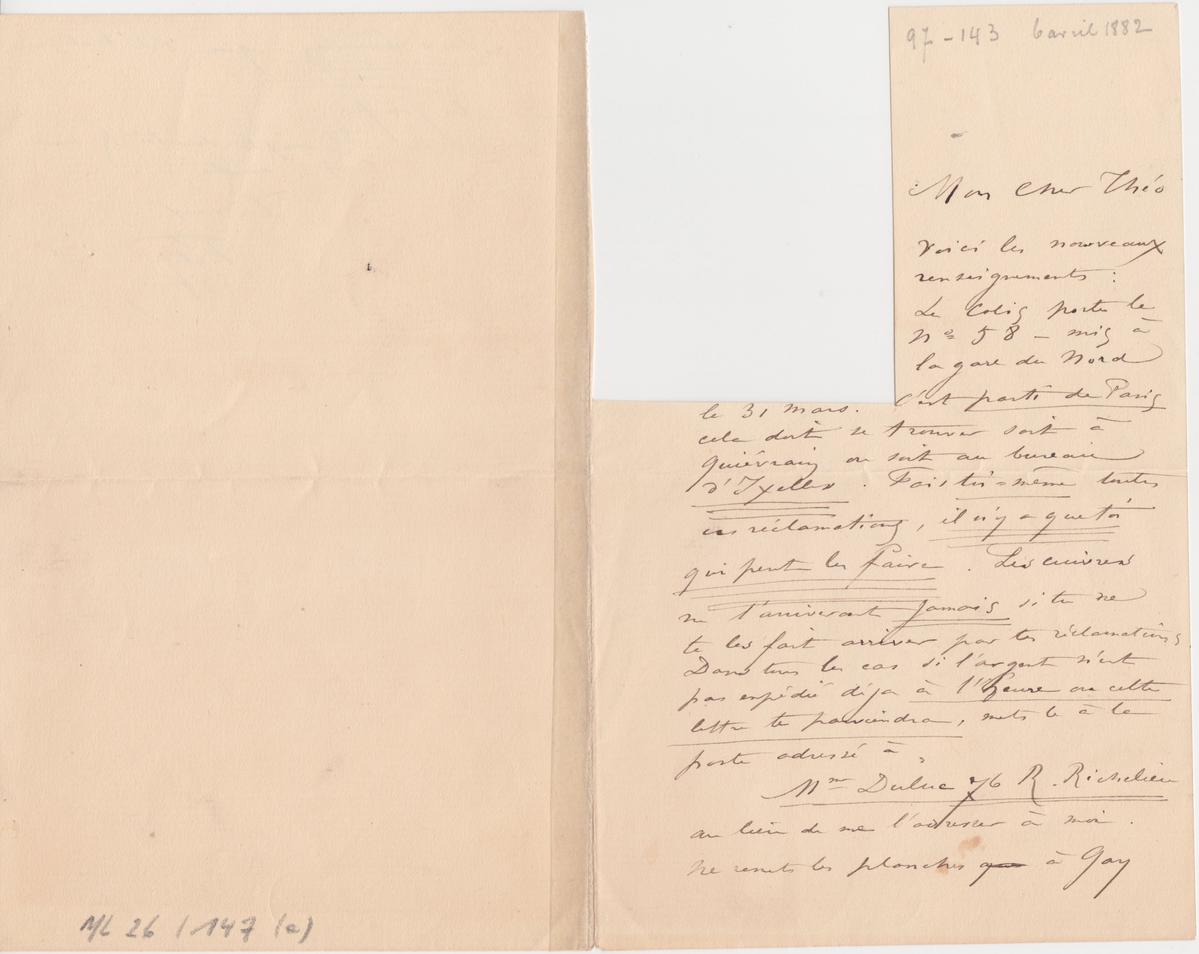 97-143 6 avril 1882
Mon cher Théo
Voici les nouveaux
renseignements :
Le Colis porte le
Nº 58 - mis à
la gare du Nord
le 31 mars. C'est parti de Paris
cela doit se trouver soit à
Quiévrain ou soit au bureau
d'Ixelles. Fais toi-même toutes
les réclamations, il n'y a que toi
qui peut les faire. Les cuivres
ne t'arriveront jamais si tu ne
te les fait arriver par tes réclamations
Dans tous les cas si l'argent n'est
pas expédié déja à l'heure ou cette
lettre te parviendra, mets le à la
poste adressé à
Mme Duluc 76 R. Richelieu
au lieu de me l'adresser à moi.
Ne remets les planches que à Gay
ML 26 / 147 (a)